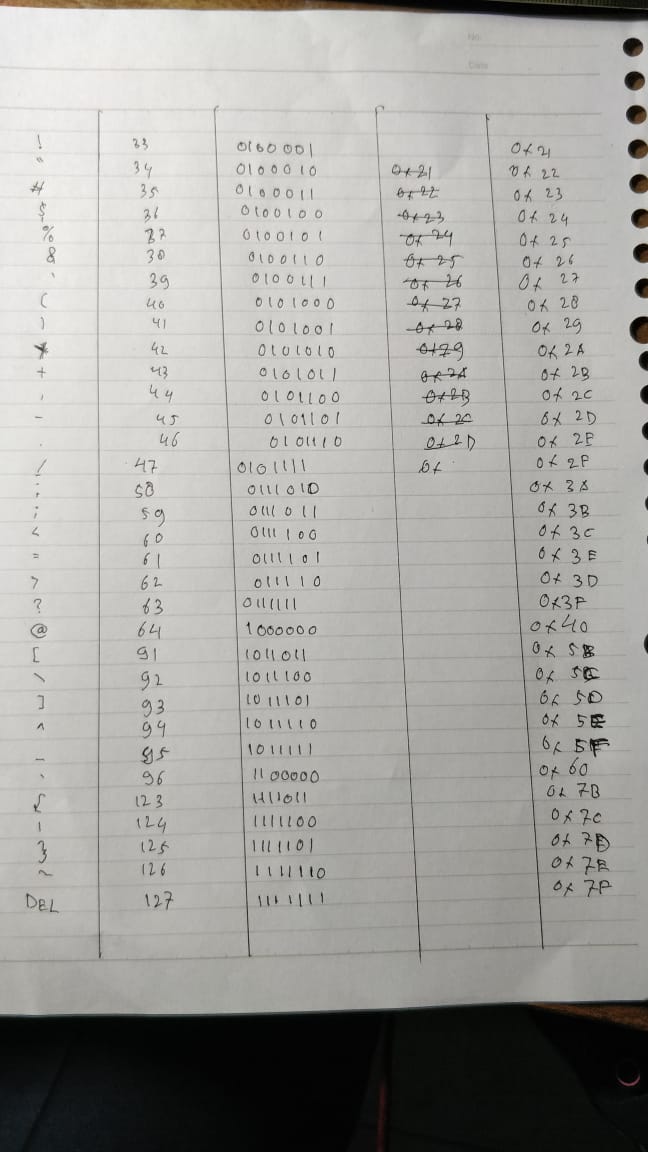 No.
Date
! 33 0100001 0x21
" 34 0100010 0x21 0x22
# 35 0100011 0x22 0x23
$ 36 0100100 0x23 0x24
% 37 0100101 0x24 0x25
& 38 0100110 0x25 0x26
' 39 0100111 0x26 0x27
( 40 0101000 0x27 0x28
) 41 0101001 0x28 0x29
* 42 0101010 0x29 0x2A
+ 43 0101011 0x2A 0x2B
, 44 0101100 0x2B 0x2C
- 45 0101101 0x2C 0x2D
. 46 0101110 0x2D 0x2E
/ 47 0101111 0x 0x2F
: 58 0111010 0x3A
; 59 0111011 0x3B
< 60 0111100 0x3C
= 61 0111101 0x3E
> 62 011110 0x3D
? 63 0111111 0x3F
@ 64 1000000 0x40
[ 91 1011011 0x5B
\ 92 1011100 0x5C
] 93 1011101 0x5D
^ 94 1011110 0x5E
_ 95 1011111 0x5F
` 96 1100000 0x60
{ 123 1111011 0x7B
| 124 1111100 0x7C
} 125 1111101 0x7D
~ 126 1111110 0x7E
DEL 127 1111111 0x7F